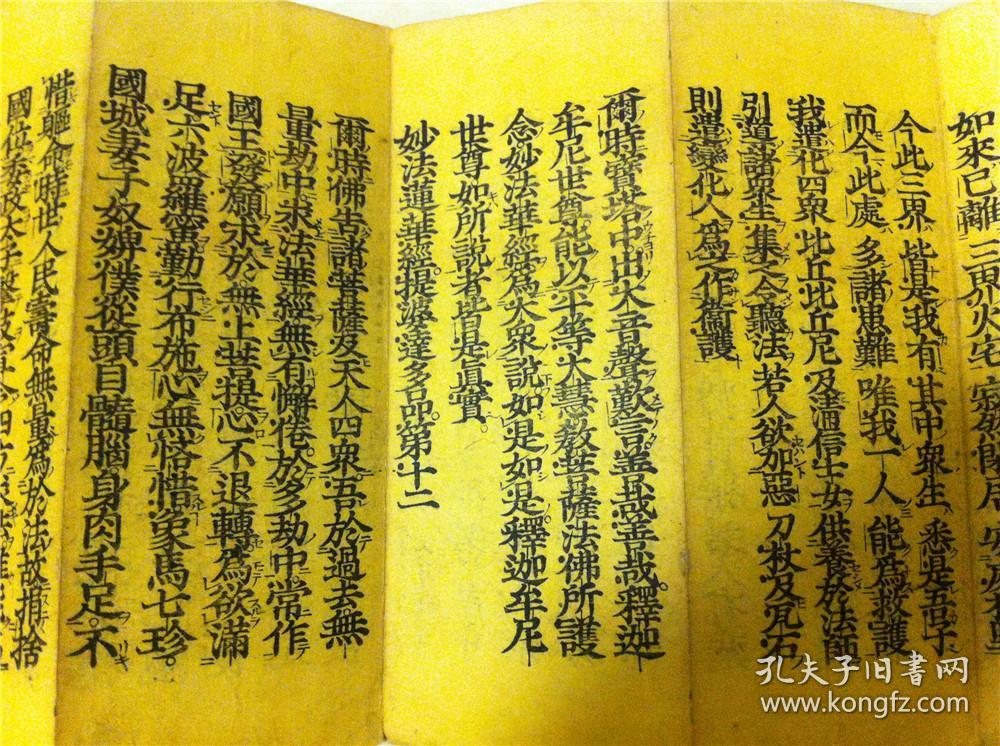 如來已離三界火宅寂然閑居安處
今此三界皆是我有其中衆生悉是吾子
而今此處多諸患難唯我一人能爲救護
我遣化四衆比丘比丘尼及淸信士女供養於法師
引導諸衆生集之令聽法若人欲加惡刀杖及瓦石
則遣變化人爲之作衞護
爾時寶塔中出大音聲歎言善哉善哉釋迦
牟尼世尊能以平等大慧敎菩薩法佛所護
念妙法華經爲大衆說如是如是釋迦牟尼
世尊如所說者皆是眞實。
妙法蓮華經提婆達多品第十二
爾時佛告諸菩薩及天人四衆吾於過去無
量劫中求法華經無有懈倦於多劫中常作
國王發願求於無上菩提心不退轉爲欲滿
足六波羅蜜勤行布施心無悋惜象馬七珍
國城妻子奴婢僕從頭目髓腦身肉手足不
惜軀命時世人民壽命無量爲於法故捐捨
國位委政太子
孔夫子旧书网
www.kongfz.com